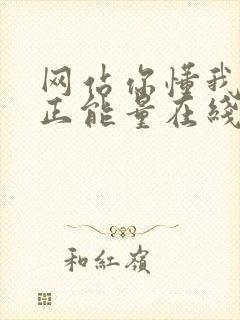 网站你懂我
正能量在线
和紅嶺